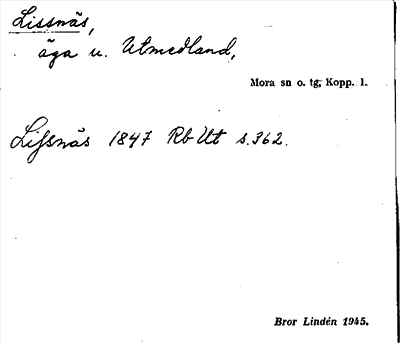 Lissnäs,
äga u. Utmedland,
Mora sn o. tg, Kopp. l.
Lissnäs 1847 Rb Ut s. 362.
Bror Lindén 1945.